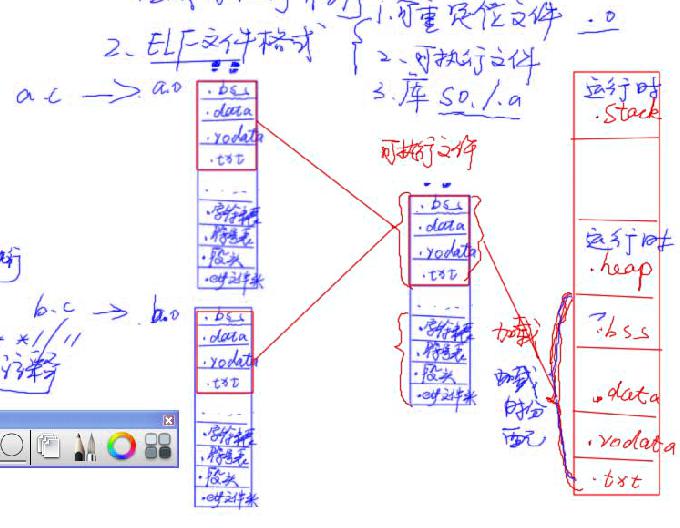 1.可重定位文件 .o
2、ELF文件格式
2、可执行文件
3.库 so./.a
a.c
a.o
.bss
.data
.rodata
.txt
....
.字符串表
.符号表
.段头
.elf文件头
b.c
b.o
.bss
.data
.rodata
.txt
....
.字符串表
.符号表
.段头
.elf文件头
可执行文件
.bss
.data
.rodata
.txt
....
.字符串表
.符号表
.段头
.elf文件头
加载
加载
时分
配
运行时
.stack
运行时
.heap
?.bss
.data
.rodata
.txt